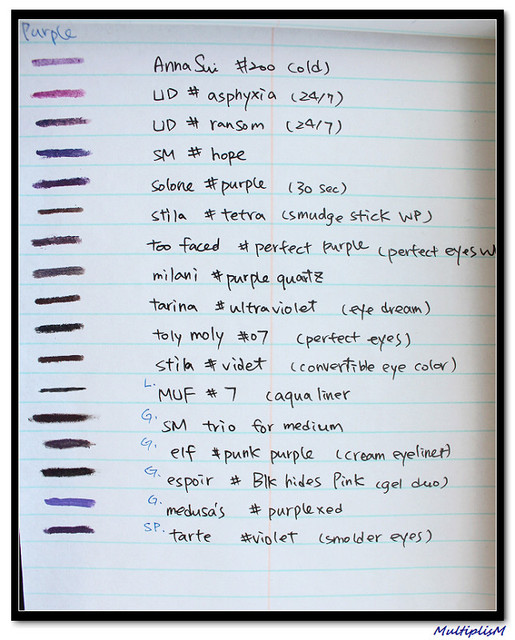 Purple
Anna Sui #200 (old)
UD # asphyxia (24/7)
UD # ransom (24/7)
SM # hope
solone #purple (30 sec)
stila # tetra (smudge stick WP)
too faced #perfect purple (perfect eyes W
milani #purple quartz
tarina #ultraviolet (eye dream)
toly moly #07 (perfect eyes)
stila # videt (convertible eye color)
L. MUF # 7 (aqua liner
G. SM trio for medium
G. elf #punk purple (cream eyeliner)
G. espoir # Blk hides Pink (gel duo)
G. medusa's #purplexed
SP. tarte #violet (smolder eyes)
MultiplisM